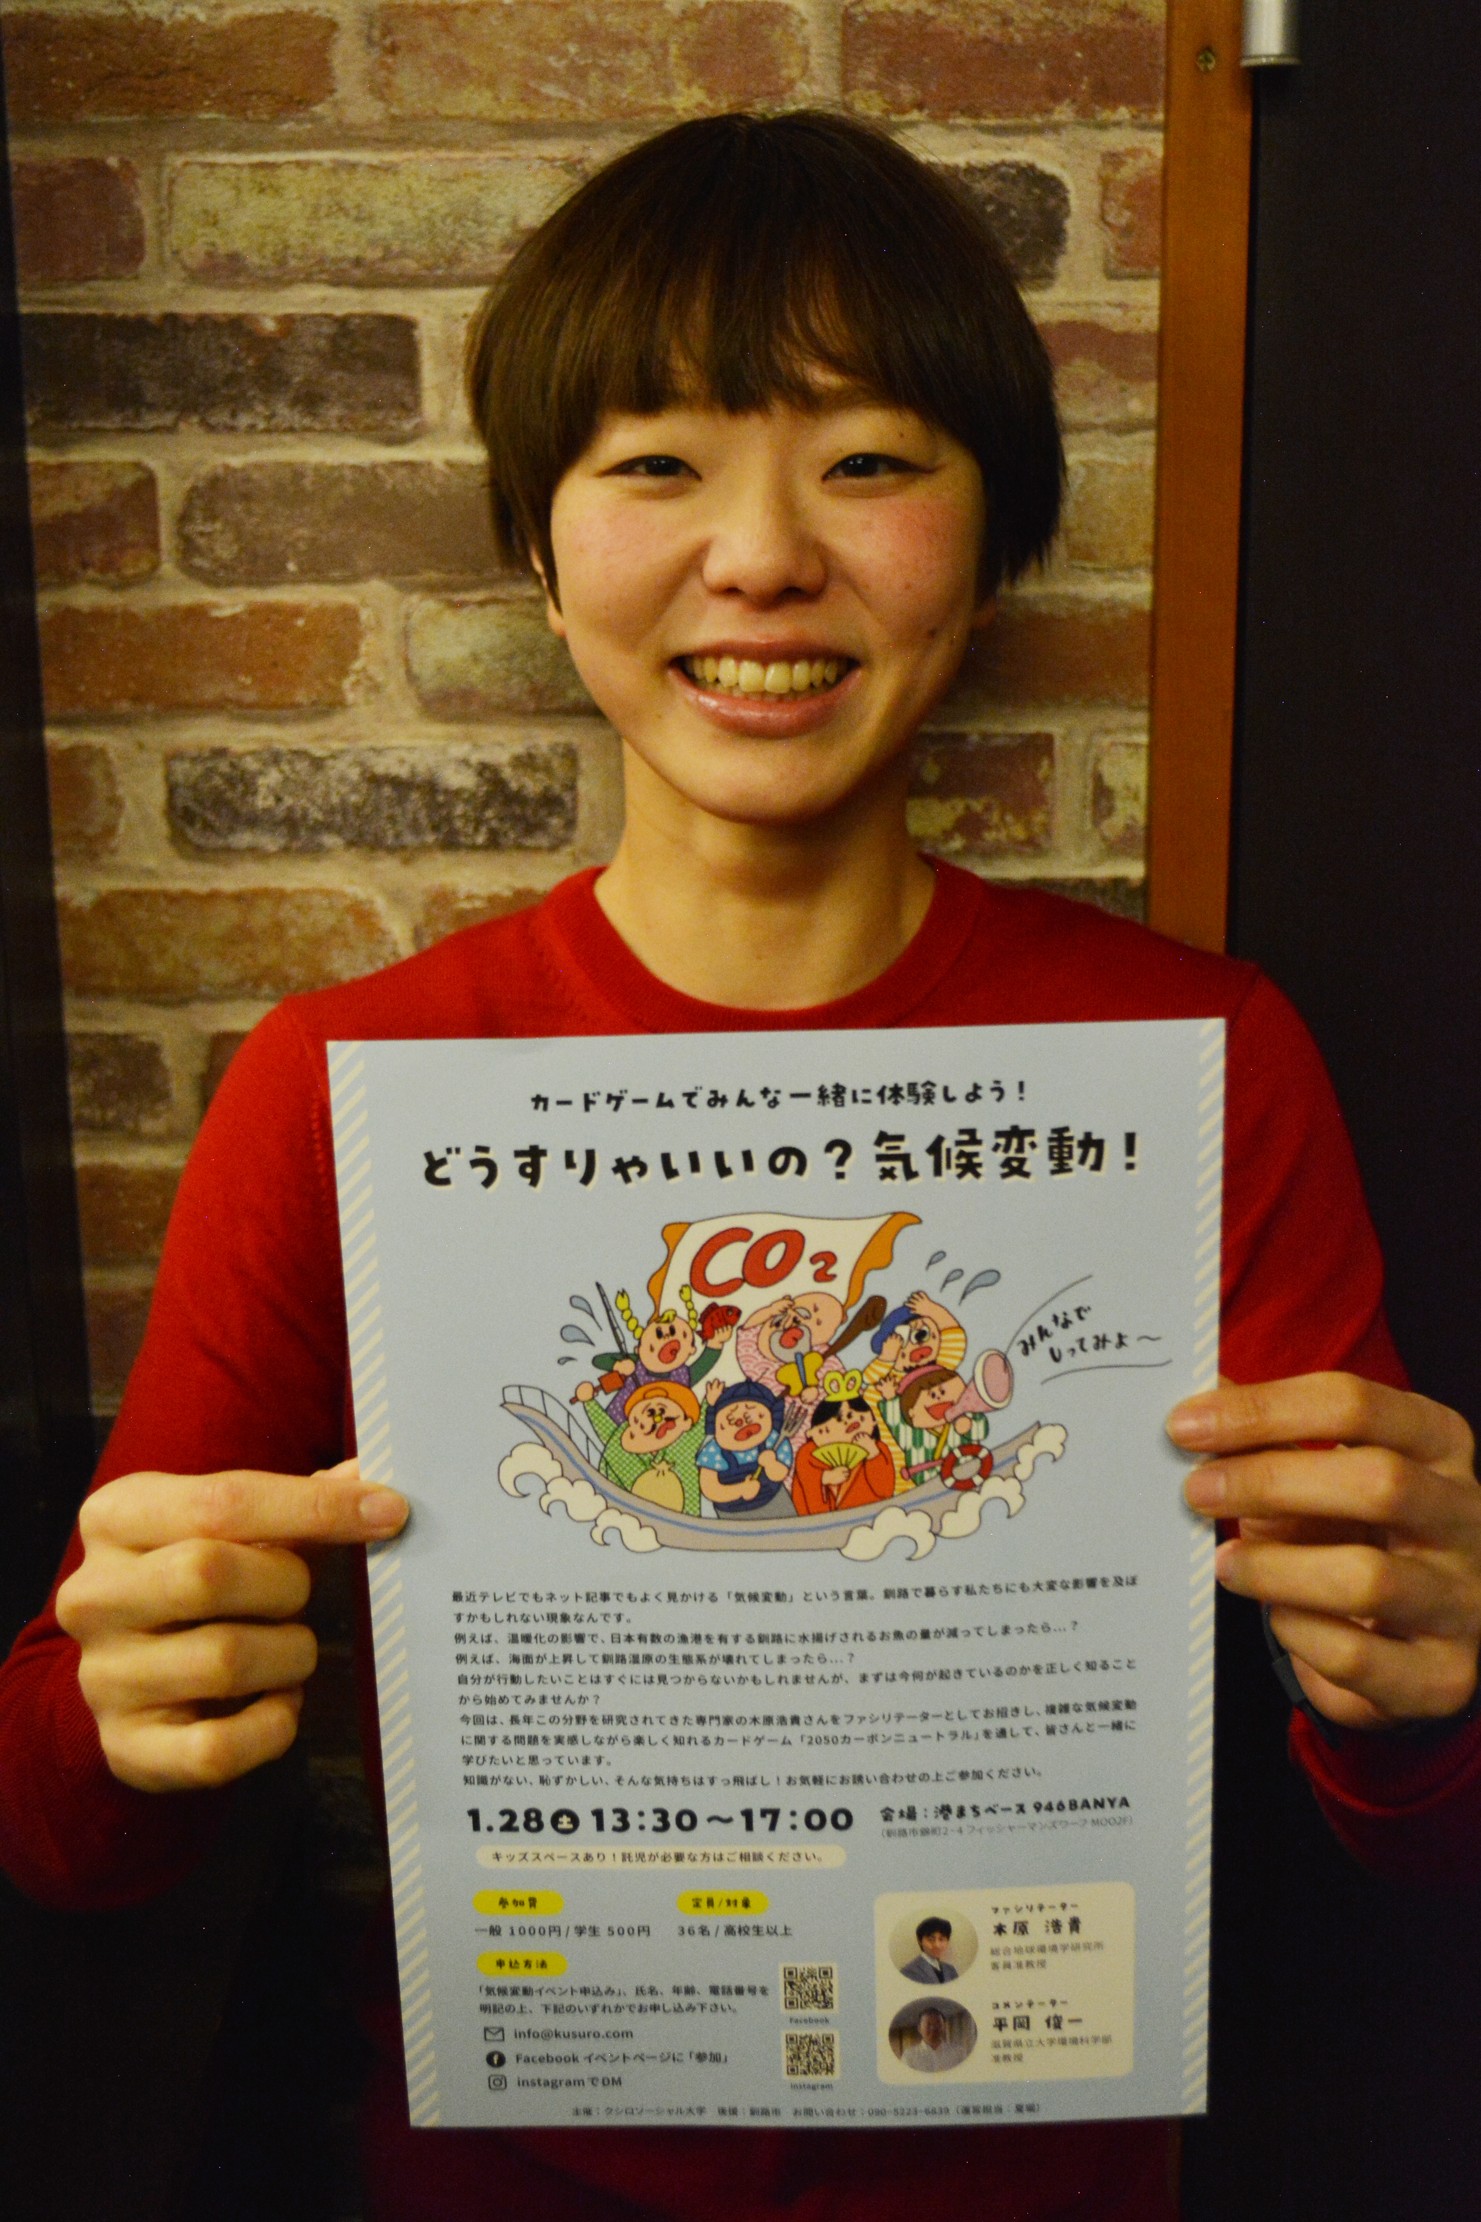 カードゲームでみんな一緒に体験しよう！
どうすりゃいいの？気候変動！
CO2
みんなで
しってみよ～
最近テレビでもネット記事でもよく見かける「気候変動」という言葉。釧路で暮らす私たちにも大変な影響を及ぼ
すかもしれない現象なんです。
例えば、温暖化の影響で、日本有数の漁港を有する釧路に水揚げされるお魚の量が減ってしまったら…？
例えば、海面が上昇して釧路湿原の生態系が壊れてしまったら…？
自分が行動したいことはすぐには見つからないかもしれませんが、まずは今何が起きているのかを正しく知ること
から始めてみませんか？
今回は、長年この分野を研究されてきた専門家の木原浩貴さんをファシリテーターとしてお招きし、複雑な気候変動
に関する問題を実感しながら楽しく知れるカードゲーム「2050カーボンニュートラル」を通して、皆さんと一緒に
学びたいと思っています。
知識がない、恥ずかしい、そんな気持ちはすっ飛ばし！お気軽にお誘い合わせの上ご参加ください。
1.28土 13:30～17:00
会場：港まちベース946BANYA
（釧路市錦町2-4フィッシャーマンズワーフMOO2F）
キッズスペースあり！託児が必要な方はご相談ください。
参加費
一般 1000円/学生 500円
定員/対象
36名/高校生以上
申込方法
「気候変動イベント申込み」、氏名、年齢、電話番号を
明記の上、下記のいずれかでお申し込み下さい。
info@kusuro.com
Facebookイベントページに「参加」
instagramでDM
Facebook
instagram
ファシリテーター
木原 浩貴
総合地球環境学研究所
客員准教授
コメンテーター
平岡 俊一
滋賀県立大学環境科学部
准教授
主催：クシロソーシャル大学 後援：釧路市 お問い合わせ：090-5223-6839（運営担当：夏堀）